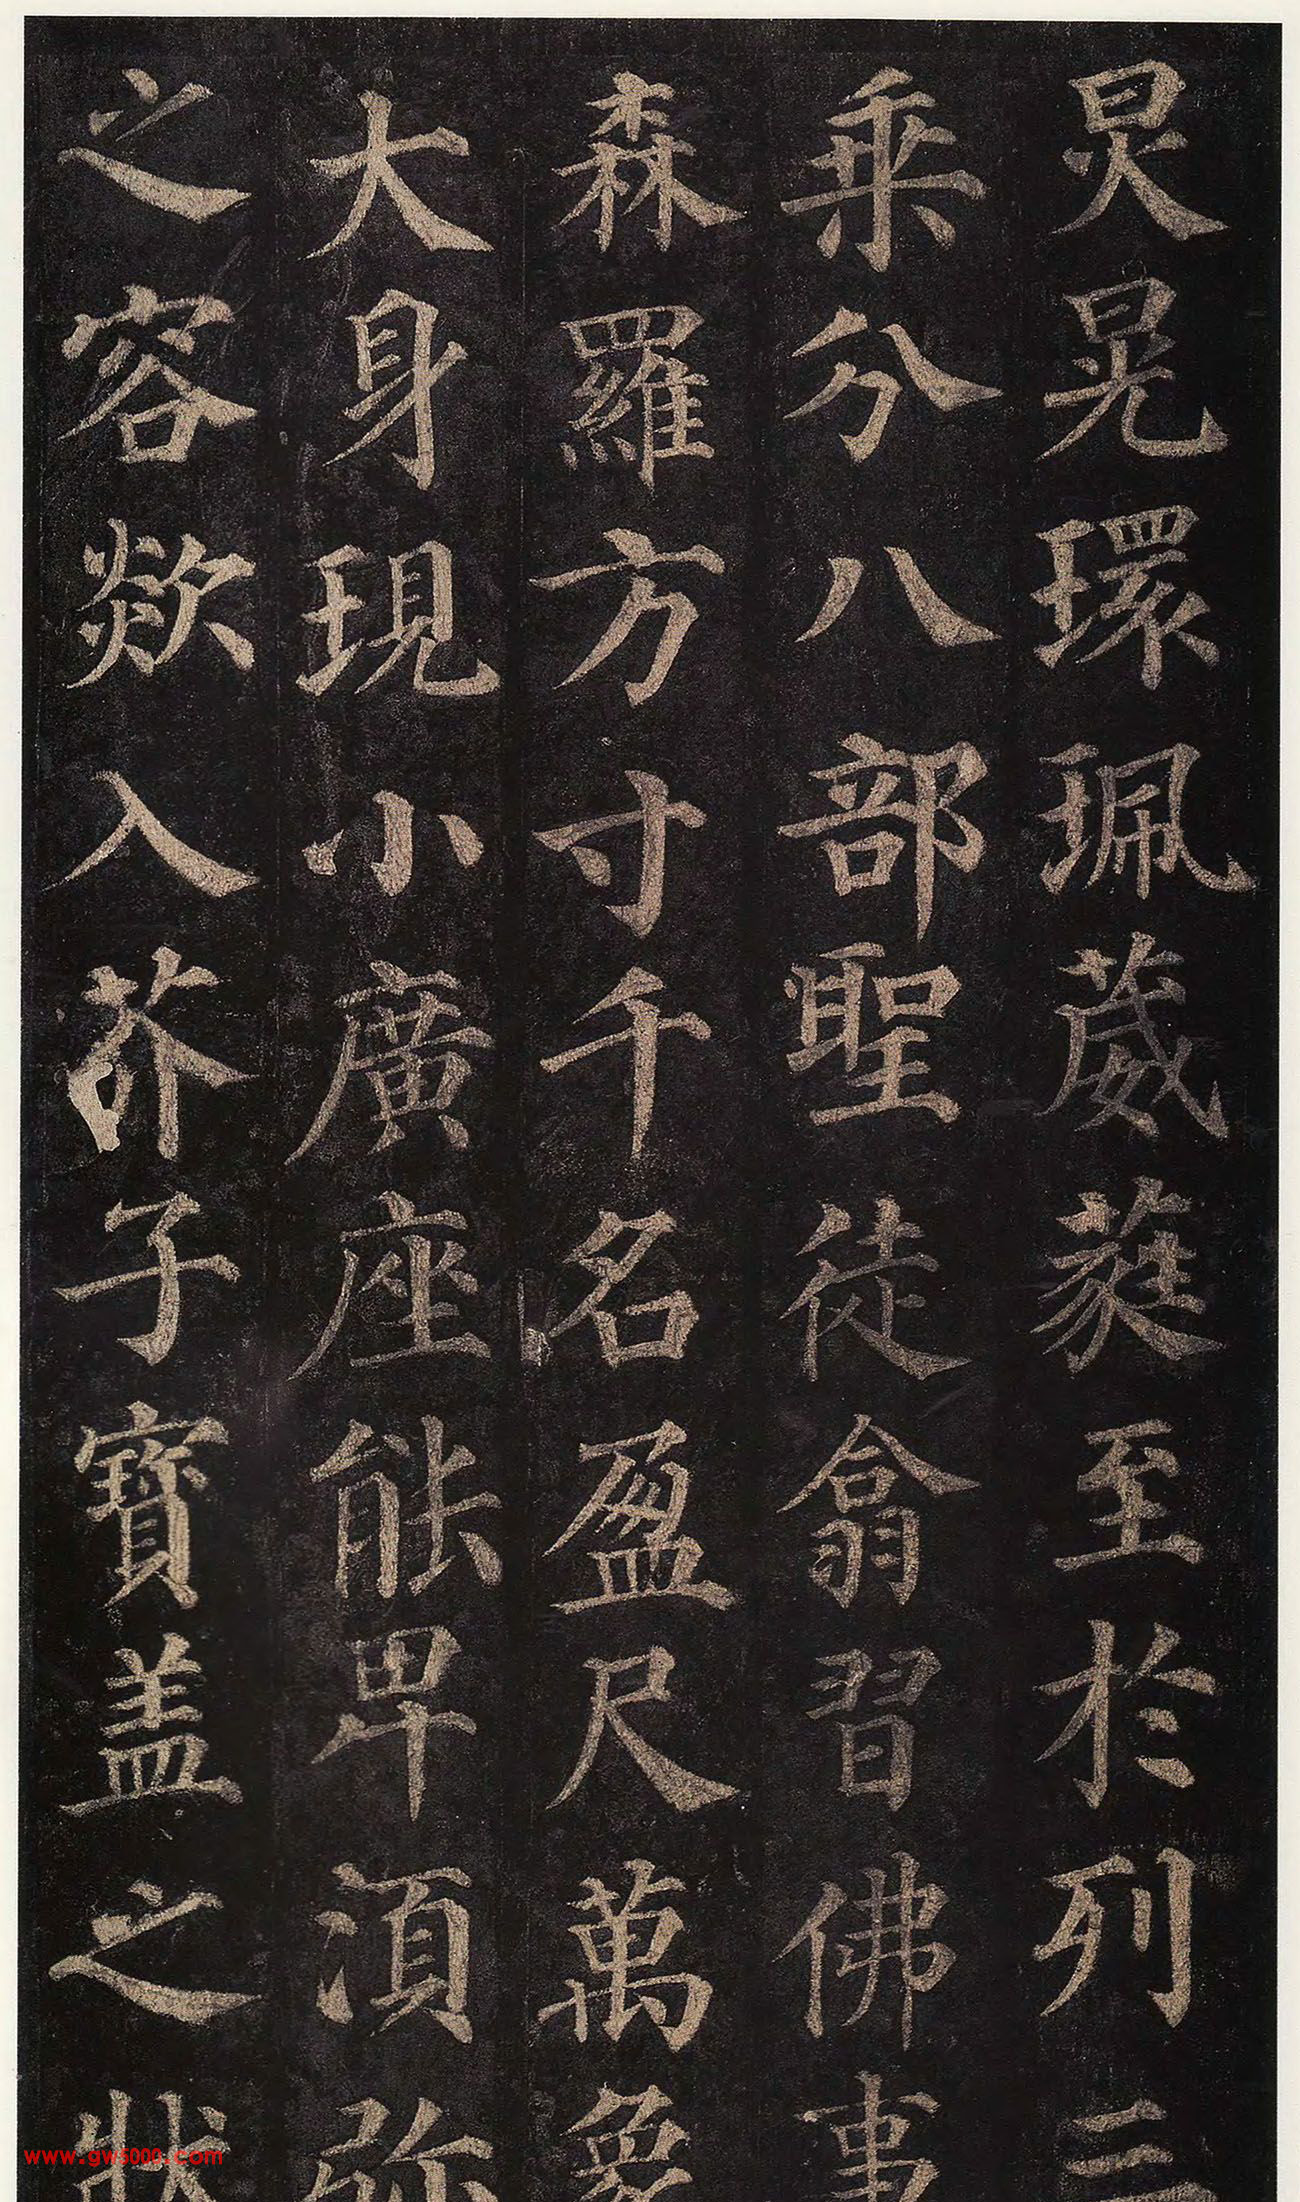 炅晃環珮葳蕤至於列三
乘分八部聖徒翕習佛事
森羅方寸千名盈尺萬象
大身現小廣座能卑須弥
之容欻入芥子寶盖之狀
www.gw5000.com